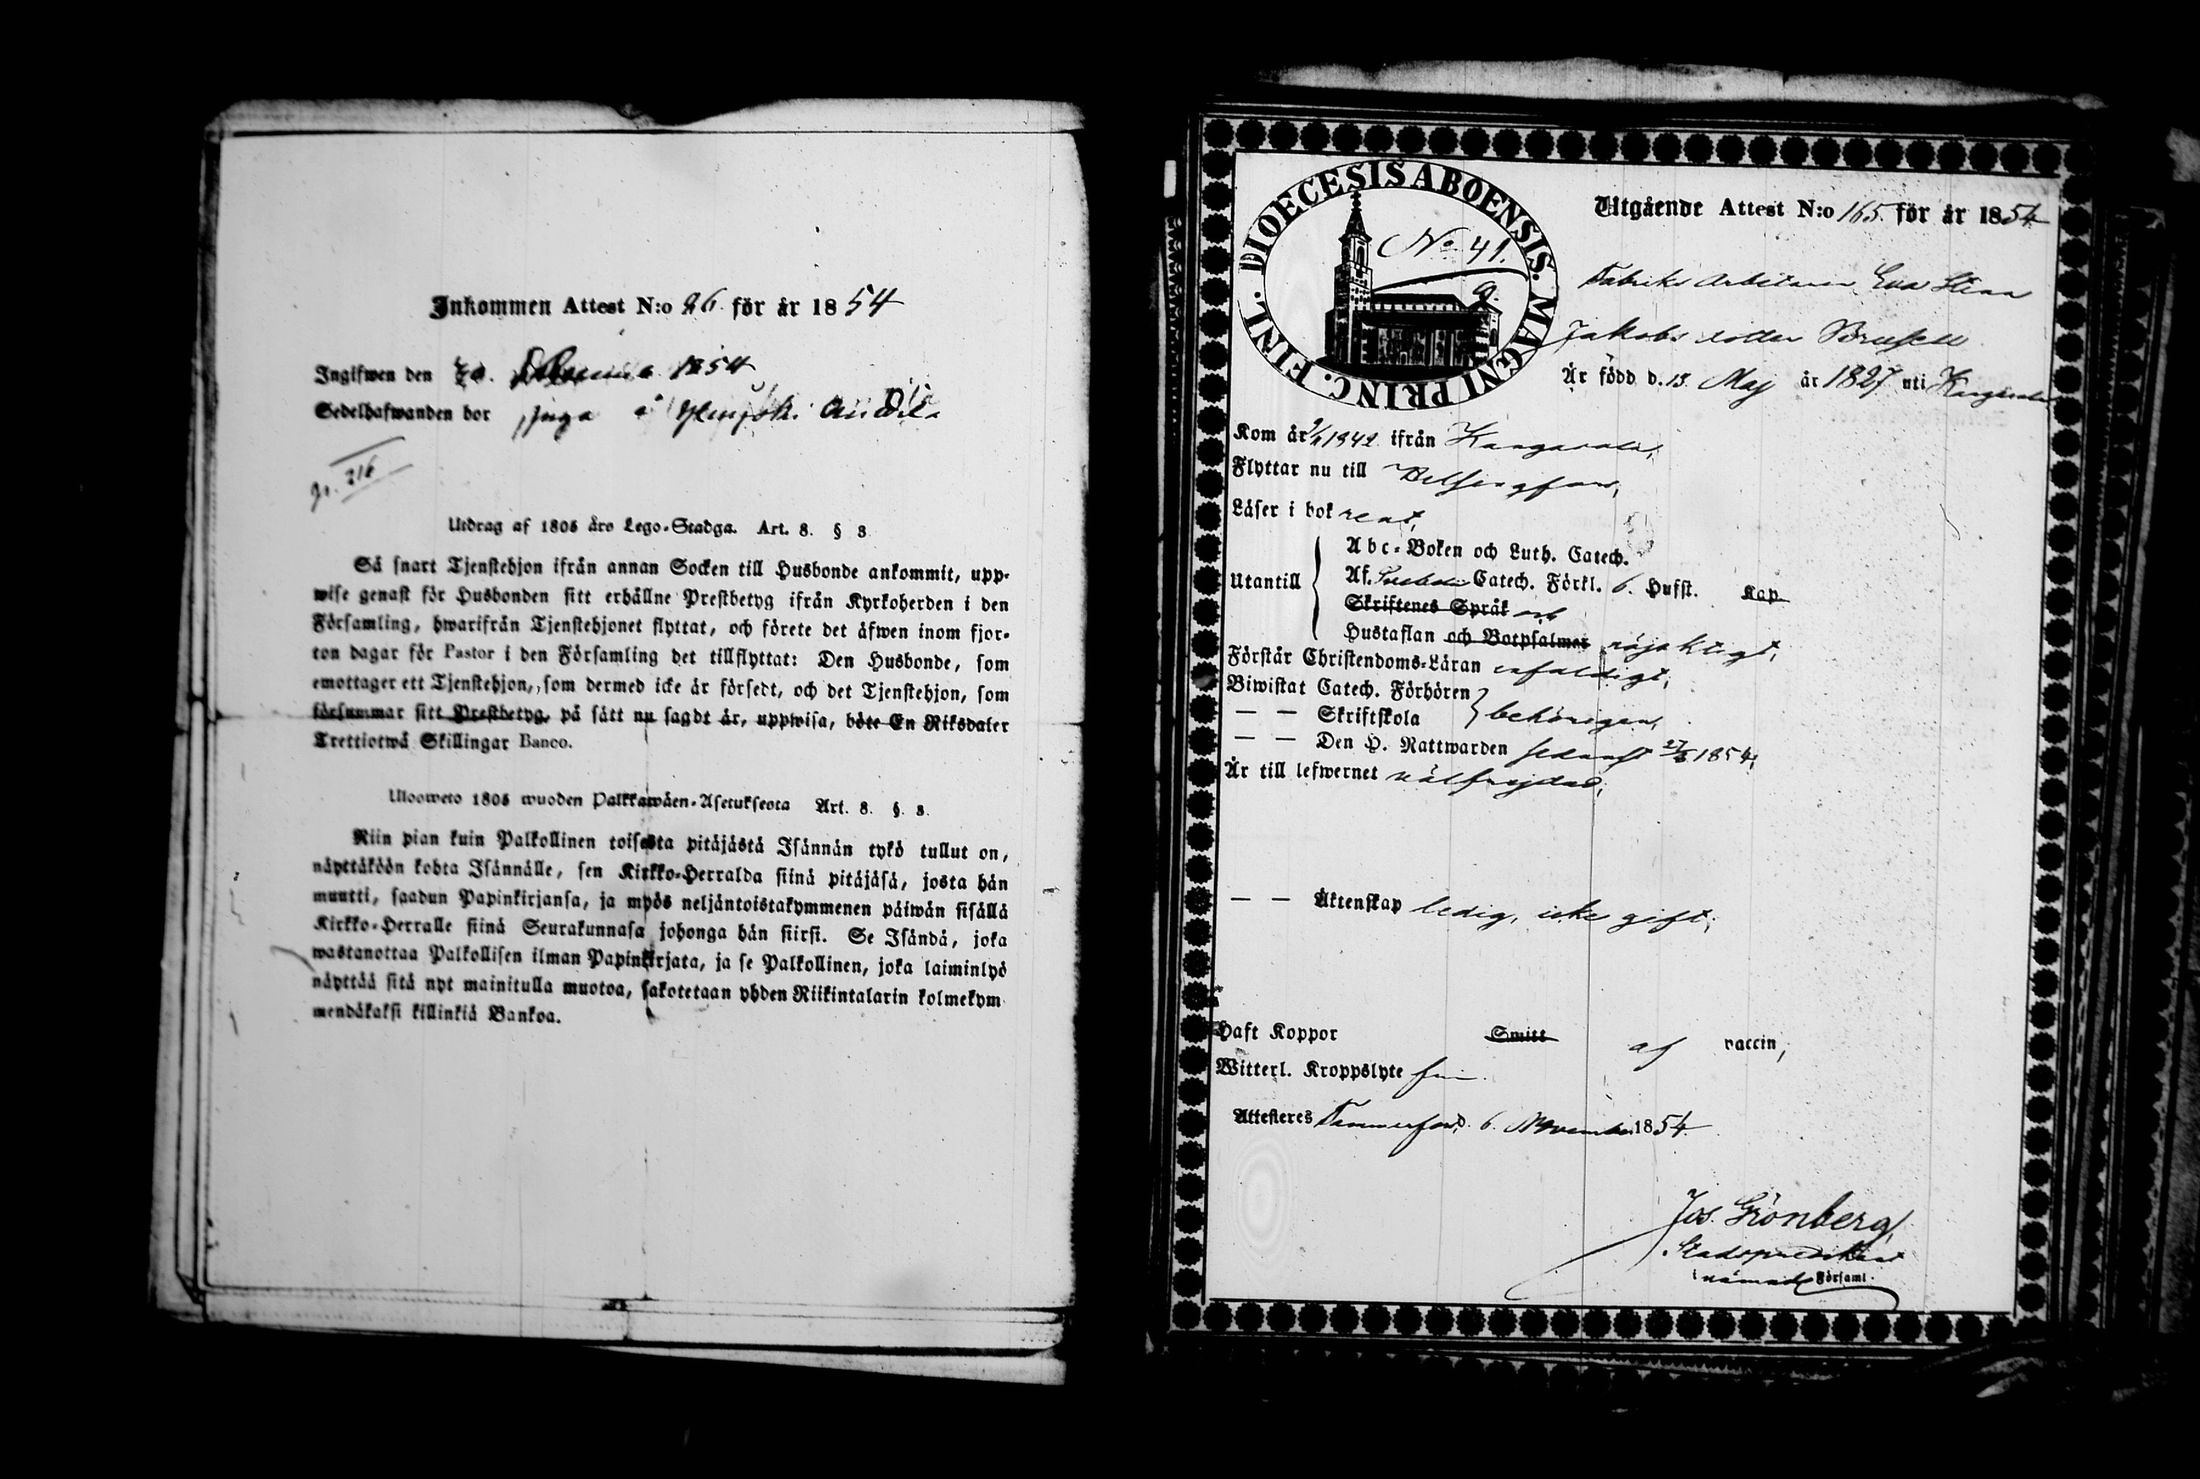 Inkommen Attest N:o 26. för år 1854
Ingifwen den 1854
Sedelhafwanden bor
316
Utdrag af 1805 års Lego-Stadga. Art. 8. § 3
Så snart Tjenstehjon ifrån annan Socken till Husbonde ankommit, upp-
wise genast för Husbonden sitt erhållne Prestbetyg ifrån Kyrkoherden i den
Församling, hwarifrån Tjenstehjonet flyttat, och förete det äfwen inom fjor-
ton dagar för Pastor i den Församling det tillflyttat: Den Husbonde, som
emottager ett Tjenstehjon, som dermed icke är försedt, och det Tjenstehjon, som
försummar sitt Prestbetyg, på sätt nu sagdt är, uppwisa, böte En Riksdaler
Trettiotwå Skillingar Banco.
Ulosweto 1805 wuoden Palkkawäen-Asetuksesta Art. 8. §. 3.
Niin pian kuin Palkollinen toisesta pitäjästä Isännän tykö tullut on,
näyttäköön kohta Isännälle, sen Kirkko-Herralda siinä pitäjäsä, josta hän
muutti, saadun Papinkirjansa, ja myös neljäntoistakymmenen päiwän sisällä
Kirkko-Herralle siinä Seurakunnasa johonga hän siirsi. Se Isändä, joka
wastanottaa Palkollisen ilman Papinkirjata, ja se Palkollinen, joka laiminlyö
näyttää sitä nyt mainitulla muotoa, sakotetaan yhden Riikintalarin kolmekym
mendäkaksi killinkiä Bankoa.
DIOECESIS ABOENSIS. MAGNI PRINC. FINL.
No 41.
Utgående Attest N:o 165. för år 1854
Fabriks Arbetaren Eva Stina
Jakobs dotter
Är född d. 15 Maj år 1827 uti Kangasala
Kom år 1842 ifrån Kangasala,
Flyttar nu till Helsingfors,
Läser i bok rent,
Utantill
Abc-Boken och Luth. Catech.
Af Svebelii Catech. Förkl. 6. Hufst. Kap
Skriftenes Språk och
Hustaflan och Botpsalmer nöjaktigt,
Förstår Christendoms-Läran enfaldigt,
Biwistat Catech. Förhören
— — Skriftskola behörigen,
— — Den H. Nattwarden sednast 27/8 1854,
Är till lefwernet välfrejdad,
— — Äktenskap ledig, icke gift,
Haft Koppor Smitt af vaccin,
Witterl. Kroppslyte fri.
Attesteres Tammerfors d. 6. November 1854.
Jos. Grönberg
Stadspredikant
i nämnde Församl.